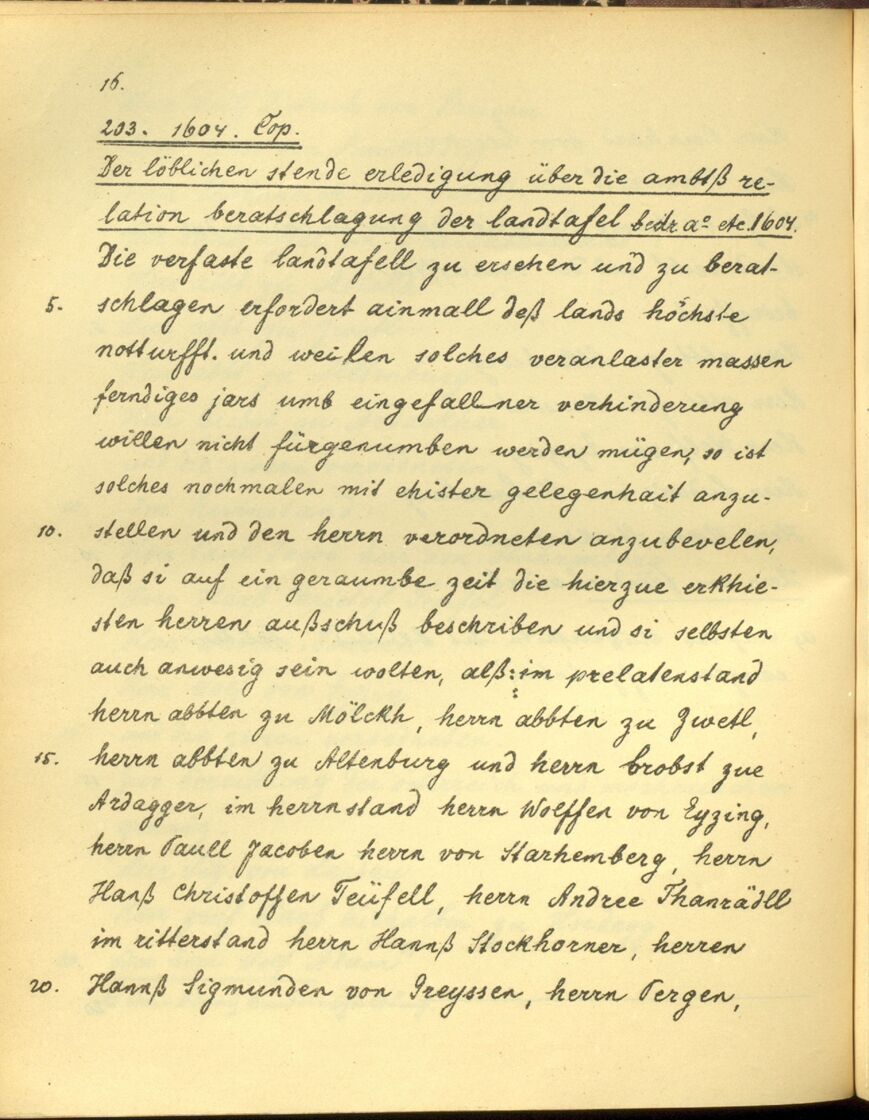 16.
203. 1604. Cop.
Der löblichen stende erledigung über die ambtß re-
lation beratschlagung der landtafel betr aº etc. 1604.
Die verfaste landtafell zu ersehen und zu berat-
5. schlagen erfordert ainmall deß lands höchste
notturfft. und weilen solches veranlaster massen
ferndiges jars umb eingefallner verhinderung
willen nicht fürgenumben werden mügen, so ist
solches nochmalen mit ehister gelegenhait anzu-
10. stellen und den herrn verordneten anzubevelen,
daß si auf ein geraumbe zeit die hierzue erkhie-
sten herren außschuß beschriben und si selbsten
auch anwesig sein wolten, alß: im prelatenstand
herrn abbten zu Mölckh, herrn abbten zu Zwetl,
15. herrn abbten zu Altenburg und herrn brobst zue
Ardagger, im herrnstand herrn Wolffen von Eyzing,
herrn Paull Jacoben herrn von Starhemberg, herrn
Hanß Christoffen Teüfell, herrn Andree Thanrädll
im ritterstand herrn Hannß Stockhorner, herren
20. Hannß Sigmunden von Greyssen, herrn Pergen,